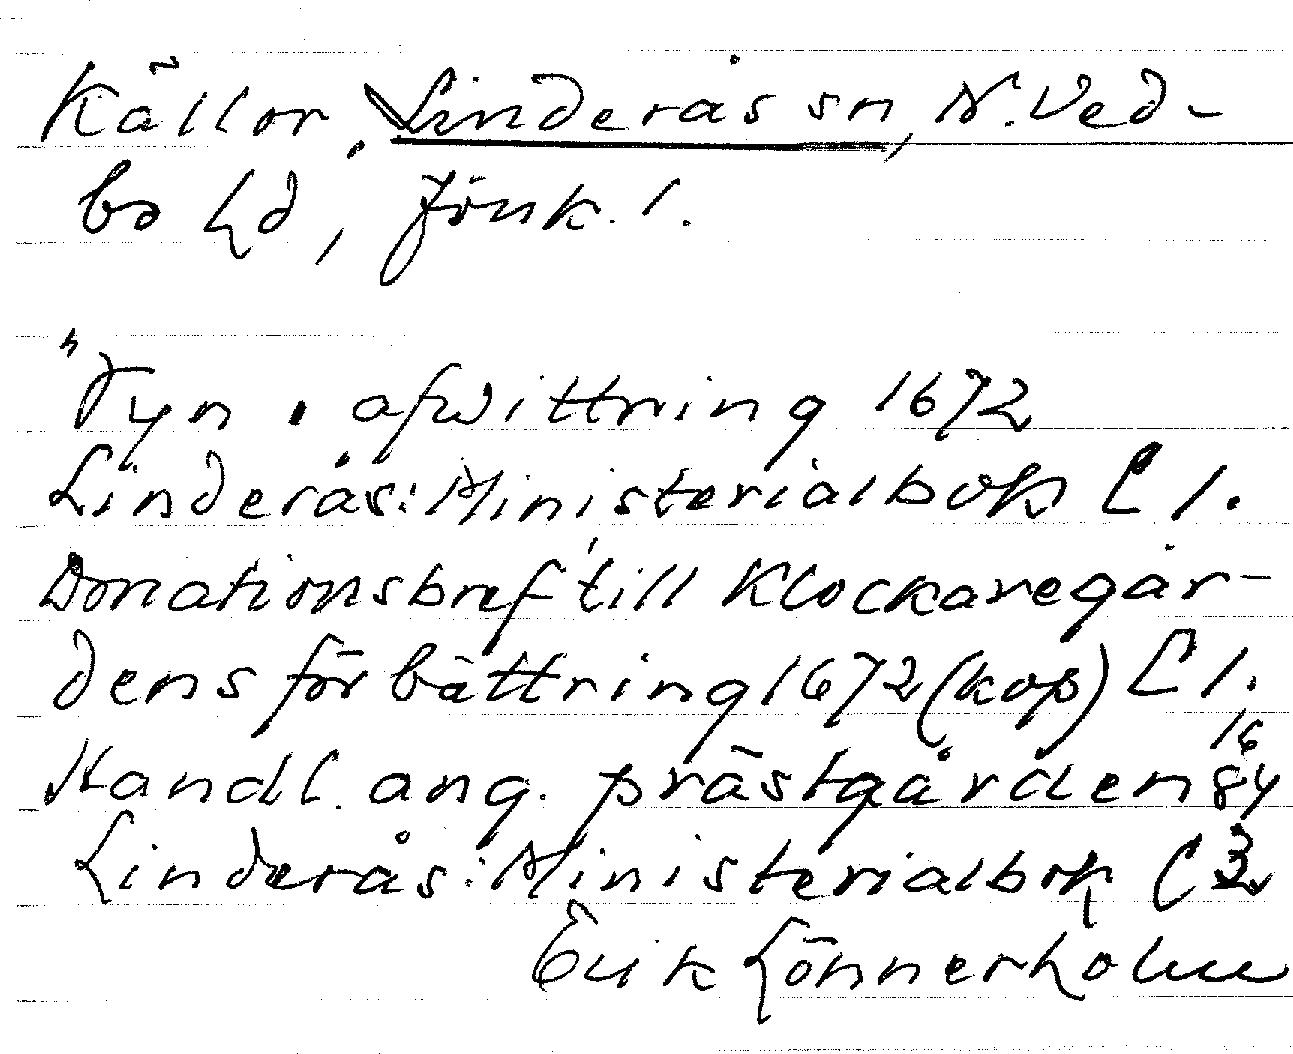 Källor, Linderås sn, N. Ved-
bo hd, Jönk. l.
"Tyn. afwittring 1672
Linderås: Ministerialbok C 1.
Donationsbref till Klockaregår-
dens förbättring 1672 (kop) C 1.
Handl. ang. prästgården 1684
Linderås: Ministerialbok C
Erik Lönnerholm